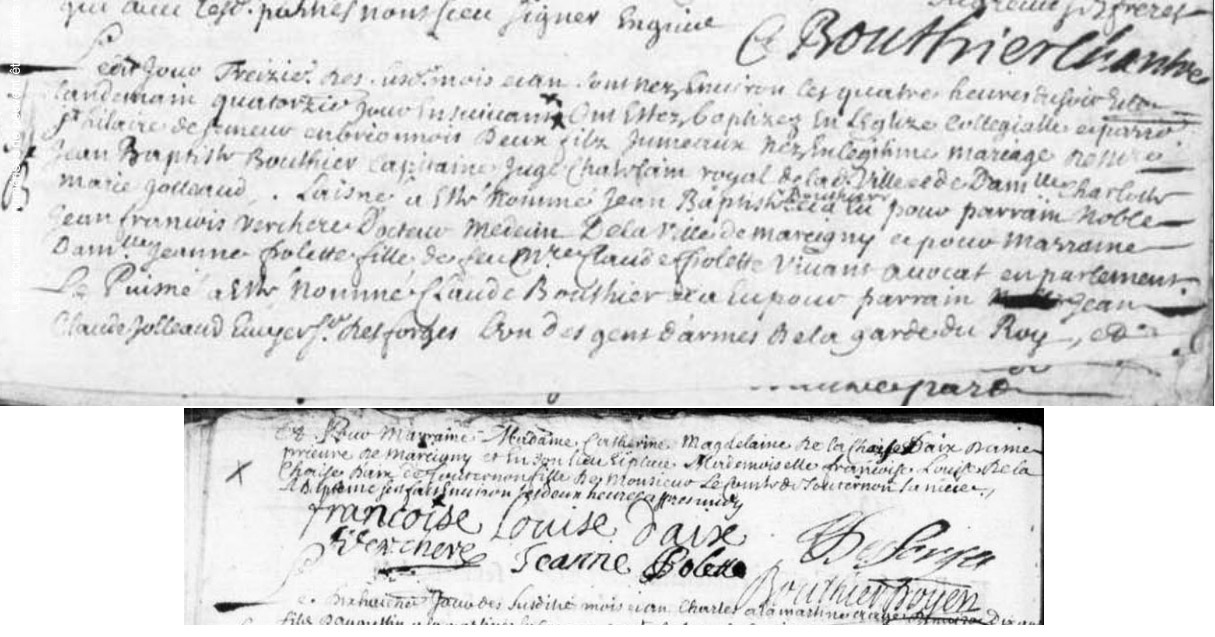 qui avec lesd. parties nont sceu signer Enquise
C Bouthier Chantre
Le dit Jour Treizie. des susd. mois et an sont nez Environ les quatre heures du soir et le
landemain quatorzie Jour Ensuivant Ont Estez baptizez En Leglize Collegialle et parro
St hilaire de semeur en brionnois Deux filz Jumeaux nez En legitime mariage de Me
Jean Baptiste Bouthier Capitaine Juge Chatelain royal de lad. Ville et de Damlle Charlotte
marie Jolleaud. Laisné a Esté Nommé Jean Baptiste Bouthier et a Eu pour parrain Noble
Jean francois Verchere Docteur Medecin De la Ville de marcigny et pour Marraine
Damlle Jeanne polette fille de feu Mre Claude polette Vivant avocat en parlement
Le Puisné a Esté Nommé Claude Bouthier et a Eu pour parrain Jean
Claude Jolleaud Escuyer Sr. des forges Lun des gent darmes de la garde du Roy, et
Et Pour Marraine Madame Catherine Magdelaine de la Chaise Daix Dame
prieure de Marcigny et En son lieu et place Mademoiselle francoise Louise De la
Chaise Daix de Souternon fille de Monsieur Le Comte de Souternon sa niece,
le Bapteme Jay fait Environ les deux heures apres midy
francoise Louise daix
Verchere Jeanne Polette
Desforges
Bouthier Doyen
Le Dixhuitie. Jour des Susdits mois et an Charles a la martine
filz